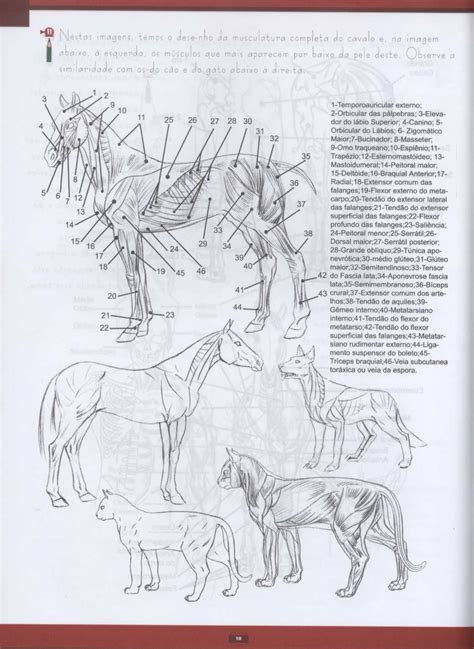 Nestas imagens, temos o dese-nho da musculatura completa do cavalo e, na imagem
abaixo, à esquerda, os músculos que mais aparecem por baixo da pele deste. Observe a
similaridade com os do cão e do gato abaixo à direita.
1-Temporoauricular externo;
2-Orbicular das pálpebras; 3-Eleva-
dor do lábio Superior; 4-Canino; 5-
Orbicular do Lábios; 6- Zigomático
Maior;7-Bucinador; 8-Masseter;
9-Omo traqueano;10-Esplênio;11-
Trapézio;12-Esternomastóideo;13-
Mastoidumeral;14-Peitoral maior;
15-Deltóide;16-Braquial Anterior;17-
Radial;18-Extensor comum das
falanges;19-Flexor externo do meta-
carpo;20-Tendão do extensor lateral
das falanges;21-Tendão do extensor
superficial das falanges;22-Flexor
profundo das falanges;23-Saliência;
24-Peitoral menor;25-Serrátil;26-
Dorsal maior;27-Serrátil posterior;
28-Grande oblíquo;29-Túnica apo-
nevrótica;30-médio glúteo;31-Glúteo
maior;32-Semitendinoso;33-Tensor
do Fascia lata;34-Aponevrose fascis
lata;35-Semimembranoso;36-Bíceps
crural;37-Extensor comum dos arte-
lhos;38-Tendão de aquiles;39-
Gêmeo interno;40-Metatarsiano
interno;41-Tendão do flexor do
metatarso;42-Tendão do flexor
superficial das falanges;43-Metatar-
siano rudimentar externo;44-Liga-
mento suspensor do boleto;45-
Tríceps braquial;46-Veia subcutanea
toráxica ou veia da espora.